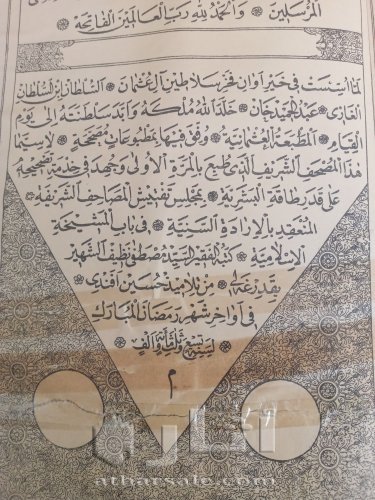 المرسلين * والحمد لله رب العالمين الفاتحة *
لما اسست في خير اوان فخر سلاطين آل عثمان * السلطان ابن السلطان
الغازي * عبد الحميد خان * خلد الله ملكه وابد سلطنته الى يوم
القيام * المطبعة العثمانية * ووفق فيها بمطبوعات مصححة * لا سيما
هذا المصحف الشريف الذي طبع بالمرة الأولى وجهد في خدمة تصحيحه
على قدر طاقة البشرية * بمجلس تفتيش المصاحف الشريفة *
المنعقد بالإرادة السنية * في باب المشيخة
الإسلامية * كتبه الفقير السيد مصطفى نظيف الشهير
بقدرغه لى * من تلاميذ حسين افندى *
في أواخر شهر رمضان المبارك
لسنة تسع وثلثمائة والف *
م
آثار
atharsale.com